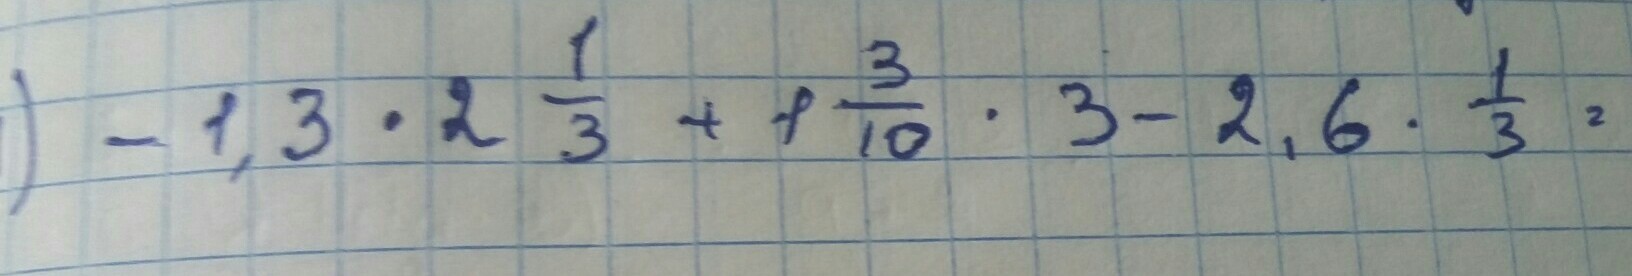 1) - 1,3 · 2 1/3 + 1 3/10 · 3 - 2,6 · 1/3 =